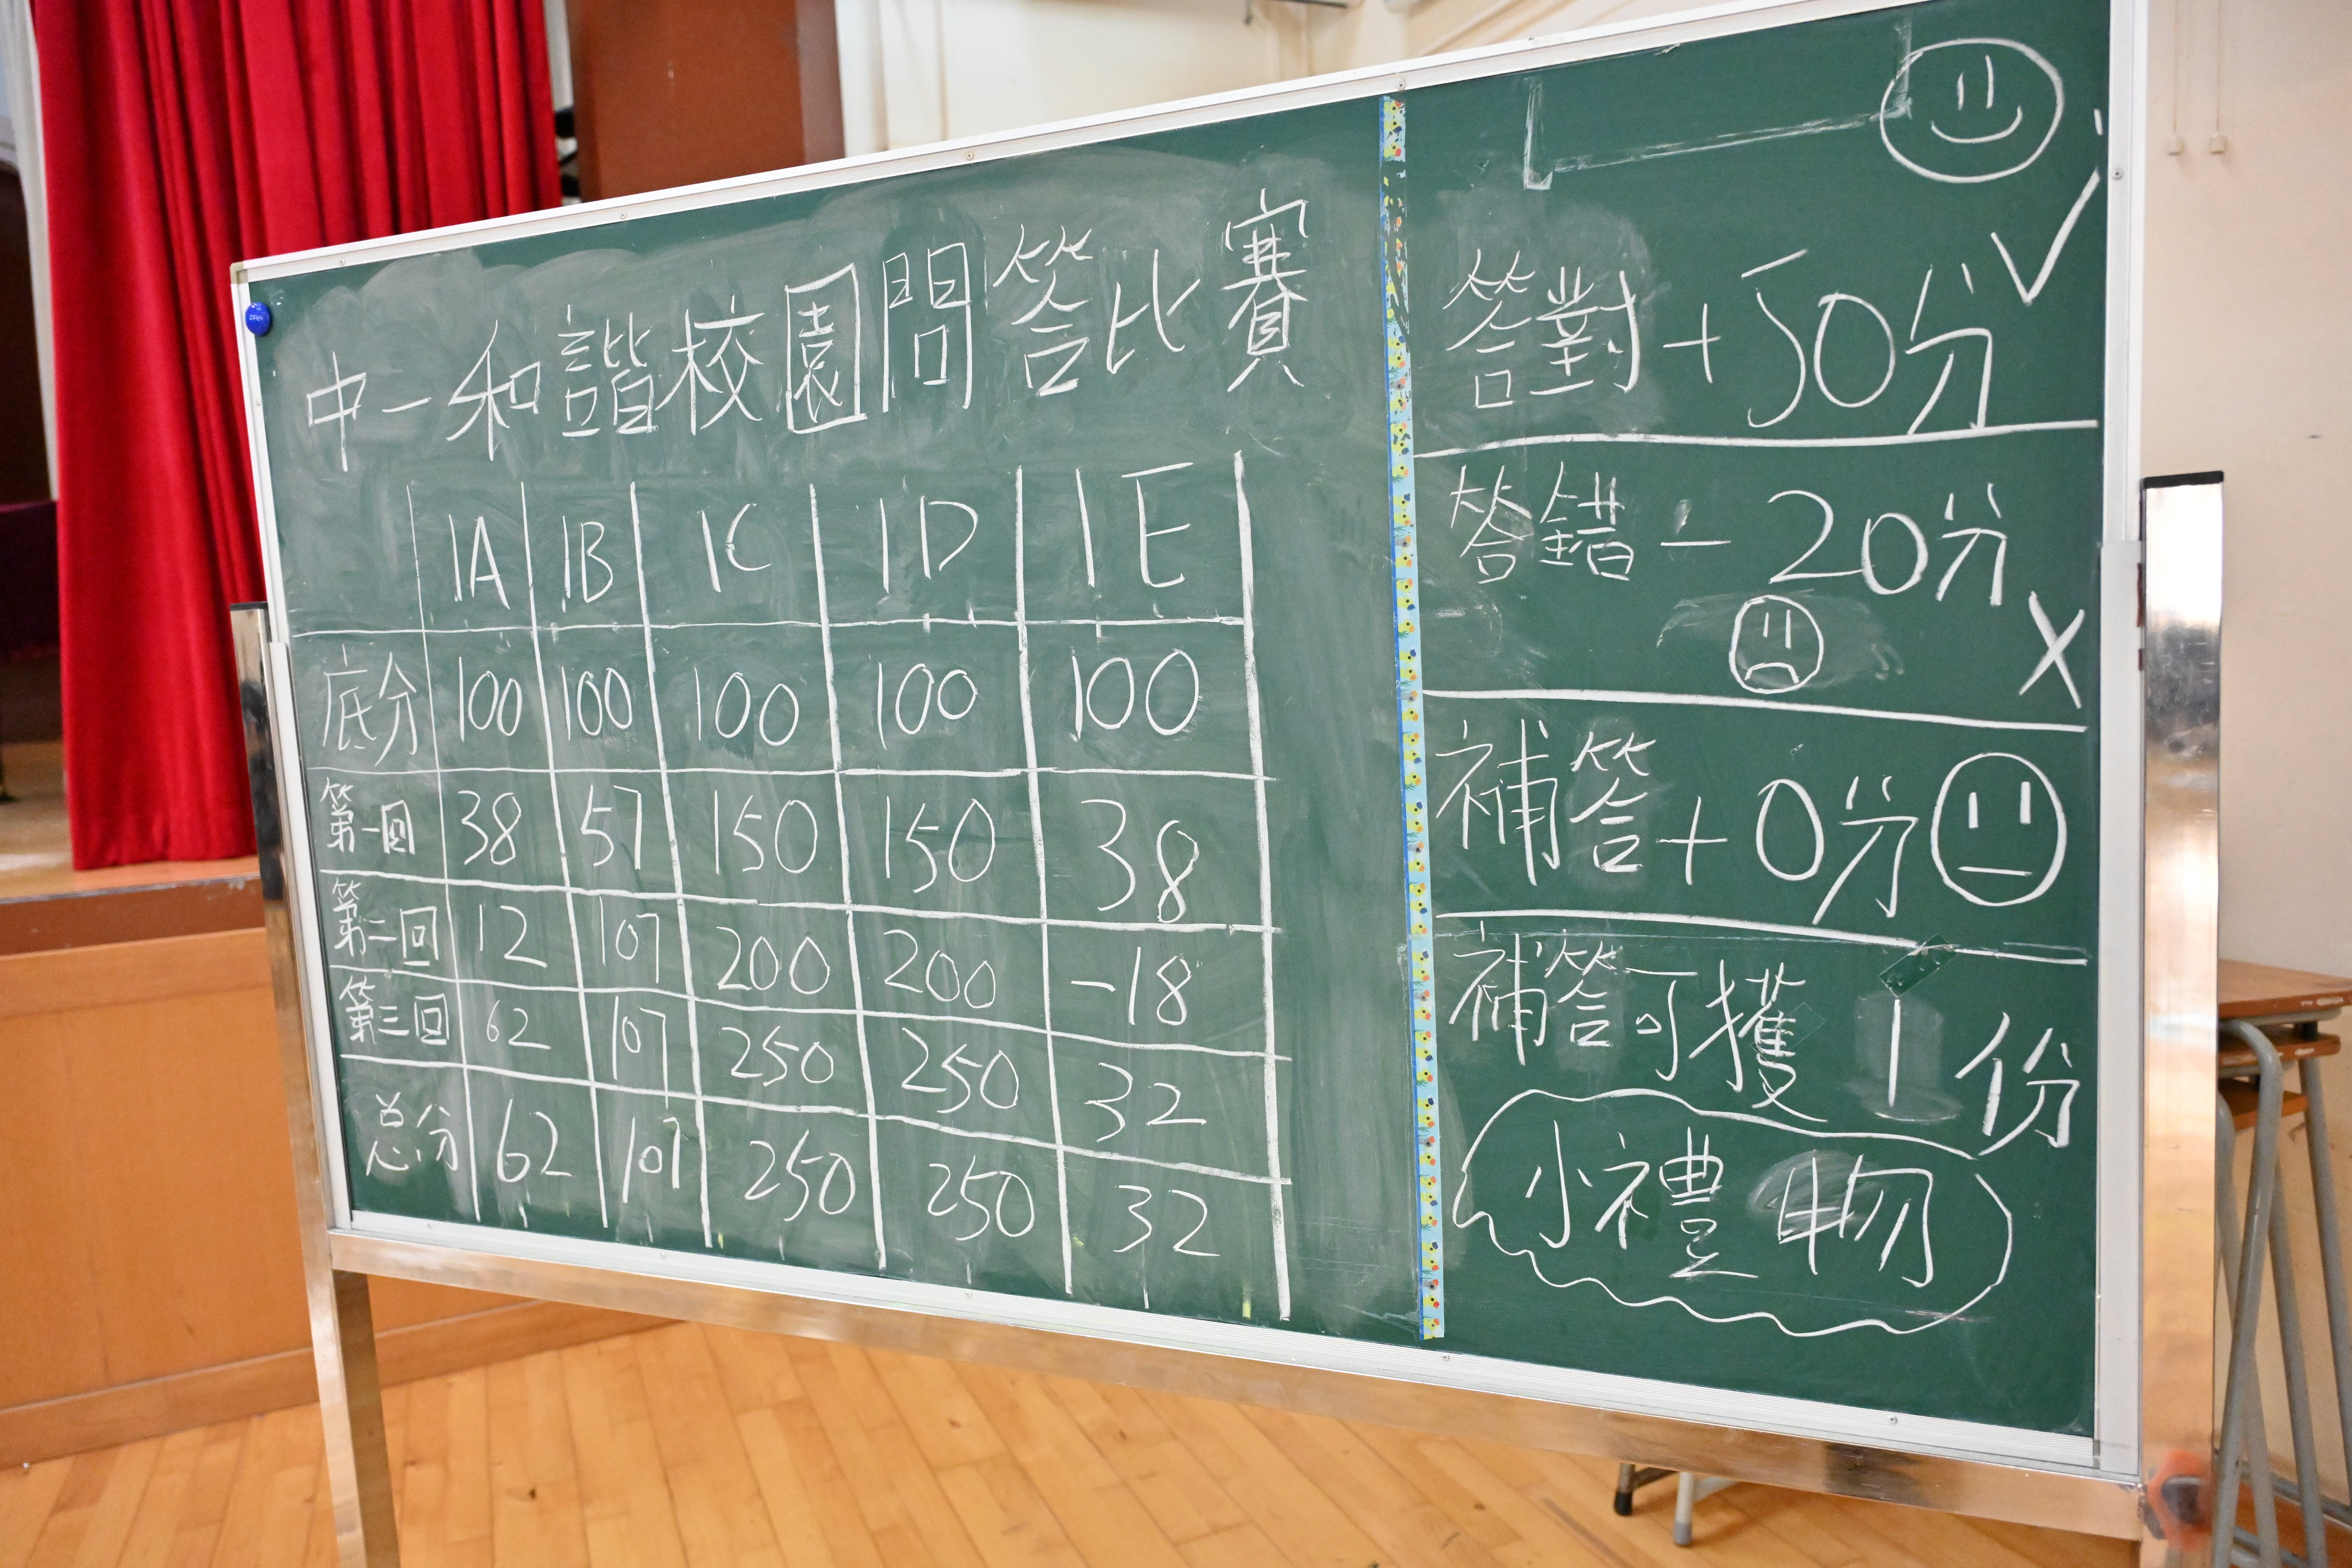 中一和諧校園問答比賽
1A 1B 1C 1D 1E
底分 100 100 100 100 100
第一回 38 57 150 150 38
第二回 12 107 200 200 -18
第三回 62 107 250 250 32
总分 62 107 250 250 32
答對+50分
答錯-20分
補答+0分
補答可獲1份
小禮物